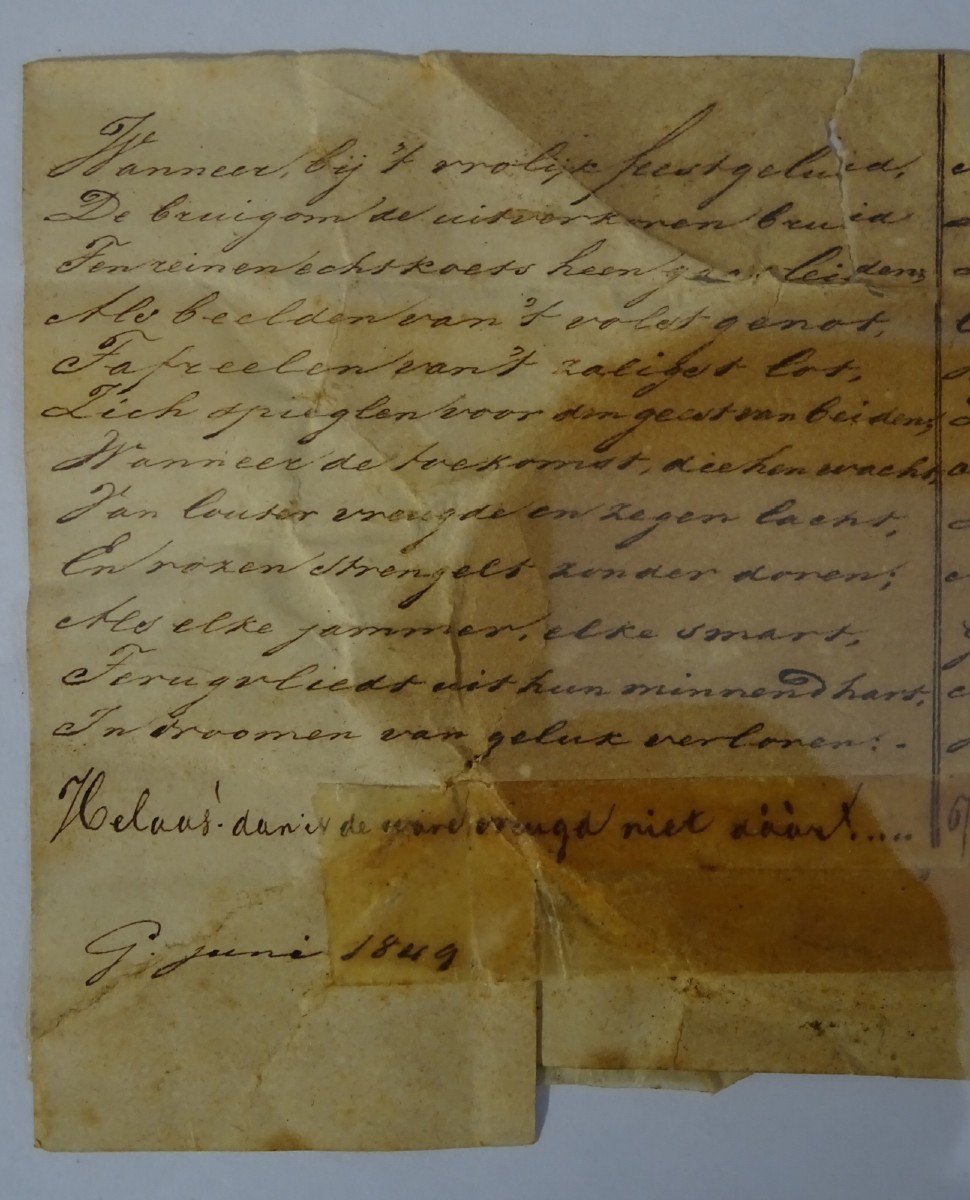 Wanneer, bij 't vrolijk feestgeluid,
De bruigom de uitverkoren bruid
Ten reinen echtkoets heen gaat leiden;
Als beelden van 't volst genot,
Tafreelen van 't zaligst lot,
Zich spieglen voor den geest van beiden;
Wanneer de toekomst, die hen wacht,
Van louter vreugde en zegen lacht,
En rozen strengelt zonder doren;
Als elke jammer, elke smart,
Terugvliedt uit hun minnend hart,
In droomen van geluk verloren:-
Helaas! dan is de ware vreugd niet dáár!....
G. juni 1849